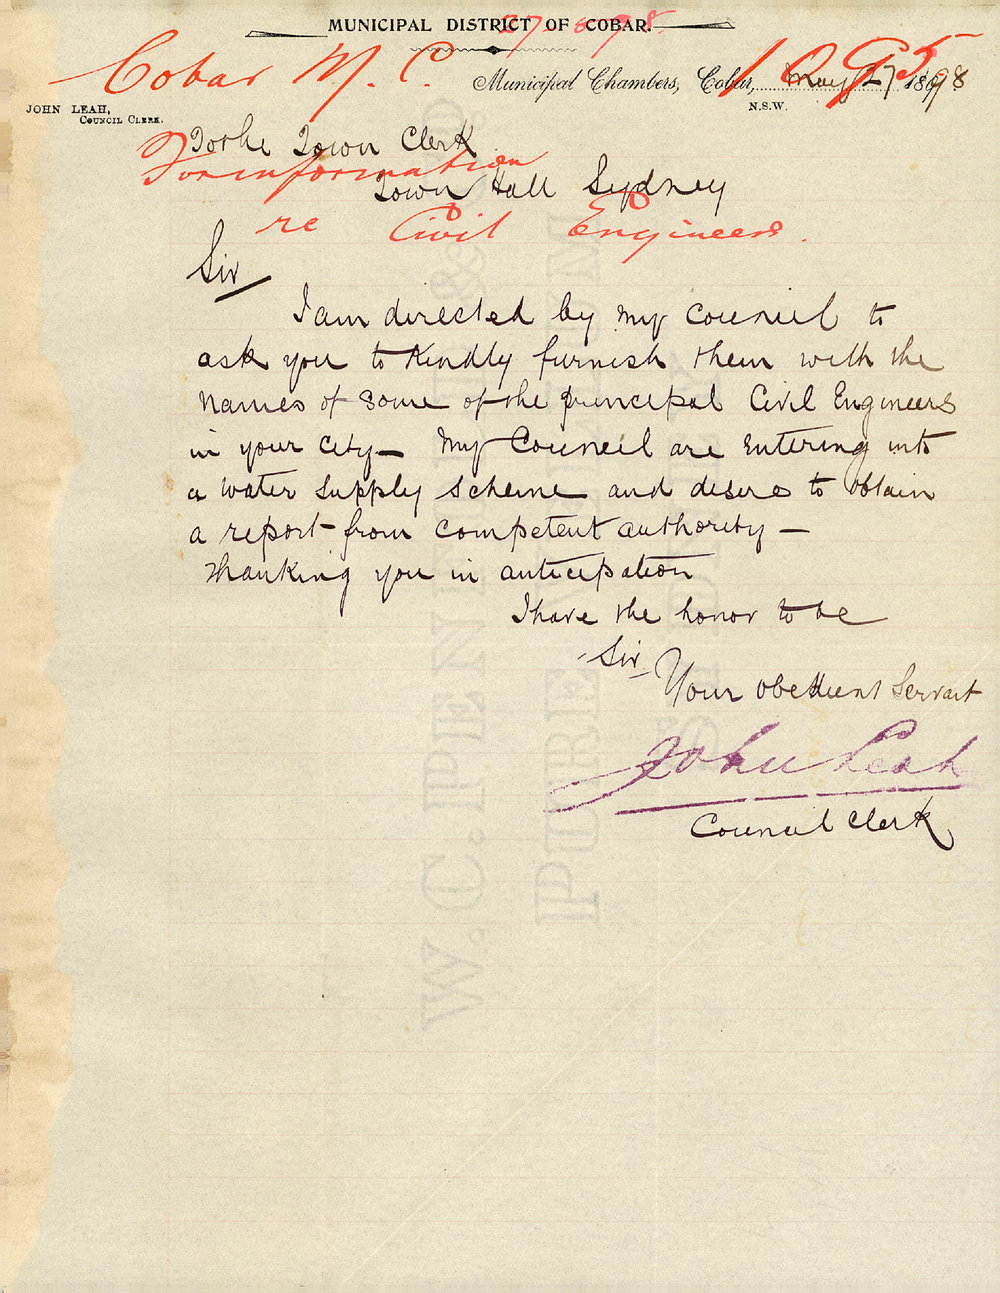 MUNICIPAL DISTRICT OF COBAR.
27 8 98.
Cobar M. C.
1095
Municipal Chambers, Cobar, May 27 1898
N.S.W.
JOHN LEAH,
COUNCIL CLERK.
To the Town Clerk
For information
Town Hall Sydney
re Civil Engineers.
Sir
I am directed by my Council to
ask you to Kindly furnish them with the
names of some of the principal Civil Engineers
in your City— My Council are entering into
a water Supply Scheme and desire to obtain
a report from Competent authority—
Thanking you in anticipation
I have the honor to be
Sir
Your obedient Servant
John Leah
Council Clerk
W. C. PENFOLD & CO
PURE LINEN
SYDNEY